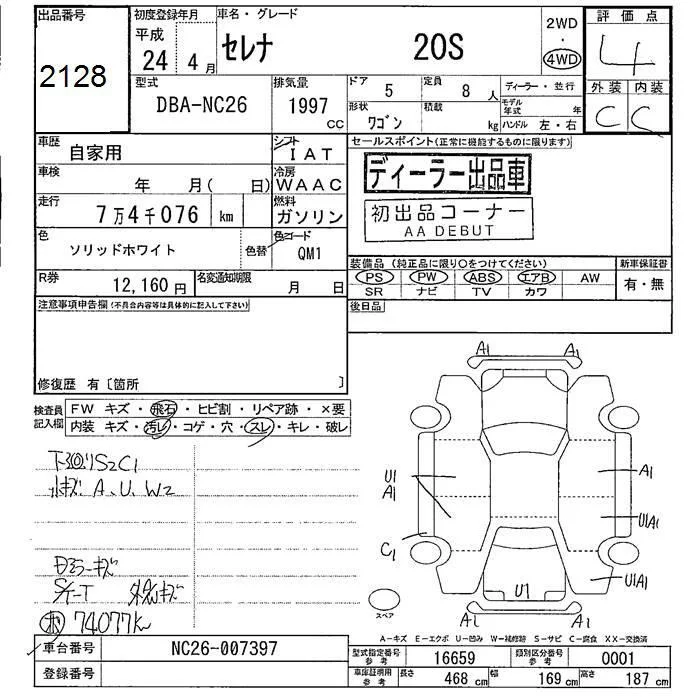 出品番号
2128
初度登録年月
平成
24年 4月
車名・グレード
セレナ 20S
2WD
・
4WD
評価点
4
外装 内装
C C
型式
DBA-NC26
排気量
1997
CC
ドア 5
定員 8人
形状 ワゴン
積載 kg
ディーラー・並行
モデル年式 年
ハンドル 左・右
車歴
自家用
シフト
IAT
車検
年 月( 日)
冷房
WAAC
走行
7万4千076 km
燃料
ガソリン
色
ソリッドホワイト
色替
色コード
QM1
セールスポイント(正常に機能するものに限ります)
ディーラー出品車
初出品コーナー
AA DEBUT
R券
12,160円
名変通知期限
月 日
装備品(純正品に限り○をつけてください)
PS PW ABS エアB AW
SR ナビ TV カワ
新車保証書
有・無
後日品
注意事項申告欄(不具合内容等は具体的に記入して下さい)
修復歴 有〔箇所 〕
検査員記入欄
FW キズ・飛石・ヒビ割・リペア跡・×要
内装 キズ・汚レ・コゲ・穴・スレ・キレ・破レ
下回りS2C1
小キズ A、U、W2
Dミラーキズ
S/T-T
74077K
A1 A1
U1
A1
A1
U1A1
C1
U1A1
U1
A1 A1
スペア
A-キズ E-エクボ U-凹み W-補修跡 S-サビ C-腐食 XX-交換済
車台番号
NC26-007397
登録番号
型式指定番号
参考
16659
類別区分番号
参考
0001
車庫証明用
参考
長さ 468 cm
幅 169 cm
高さ 187 cm